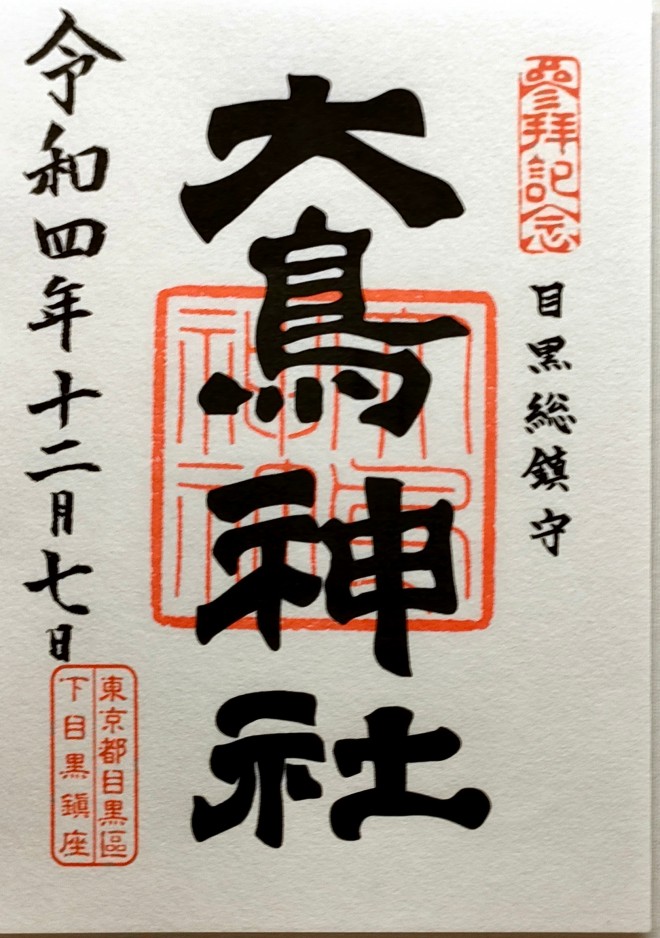 参拝記念
目黒総鎮守
大鳥神社
令和四年十二月七日
東京都目黒區
下目黒鎮座